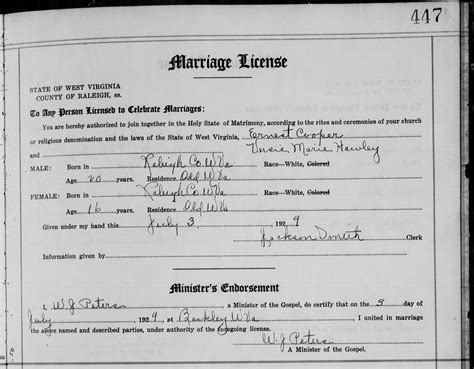 447
Marriage License
STATE OF WEST VIRGINIA
COUNTY OF RALEIGH, ss.
To Any Person Licensed to Celebrate Marriages:
You are hereby authorized to join together in the Holy State of Matrimony, according to the rites and ceremonies of your church
or religious denomination and the laws of the State of West Virginia, Ernest Cooper
and Versie Marie Hawley
MALE: Born in Raleigh Co. W Va Race—White, Colored
Age 20 years. Residence Odd, W Va
FEMALE: Born in Raleigh Co W Va Race—White, Colored
Age 16 years. Residence Odd, W Va
Given under my hand this July 3 1929
Jackson Smith Clerk
Information given by
Minister's Endorsement
I, W. J. Peters, a Minister of the Gospel, do certify that on the 3 day of
July 1929, at Beckley W Va, I united in marriage
the above named and described parties, under authority of the foregoing license.
W. J. Peters
A Minister of the Gospel.